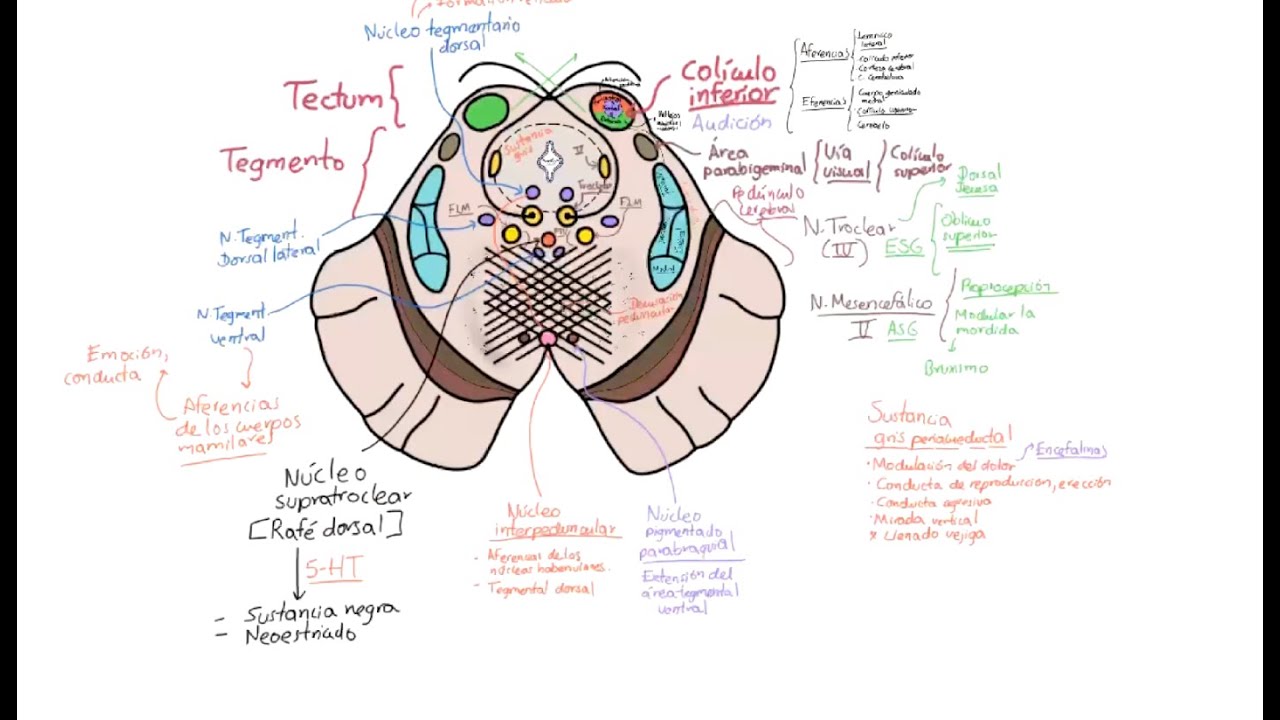 Formación reticular
Núcleo tegmentario
dorsal
Tectum
Tegmento
Colículo
inferior
Audición
Aferencias
Lemnisco
lateral
Colículo inferior
Corteza cerebral
Eferencias
Cuerpo geniculado
medial
Colículo superior
Cerebelo
Sustancia
gris
V
Troclear
FLM
FLM
Área
parabigeminal
Vía
visual
Colículo
superior
Pedúnculo
cerebral
Dorsal
N. Troclear
(IV)
ESG
Oblicuo
superior
N. Mesencefálico
V
ASG
Propiocepción
Modular la
mordida
Bruxismo
N. Tegment.
Dorsal lateral
N. Tegment
ventral
Emoción,
conducta
Aferencias
de los cuerpos
mamilares
Decusación
peduncular
Medial
Núcleo
supratroclear
[Rafé dorsal]
5-HT
- Sustancia negra
- Neoestriado
Núcleo
interpeduncular
- Aferencias de los
núcleos habenulares.
- Tegmental dorsal
Núcleo
pigmentado
parabraquial
Extensión del
área tegmental
ventral
Sustancia
gris periacueductal
· Modulación del dolor
Encefalinas
· Conducta de reproducción, erección
· Conducta agresiva
· Mirada vertical
* Llenado vejiga